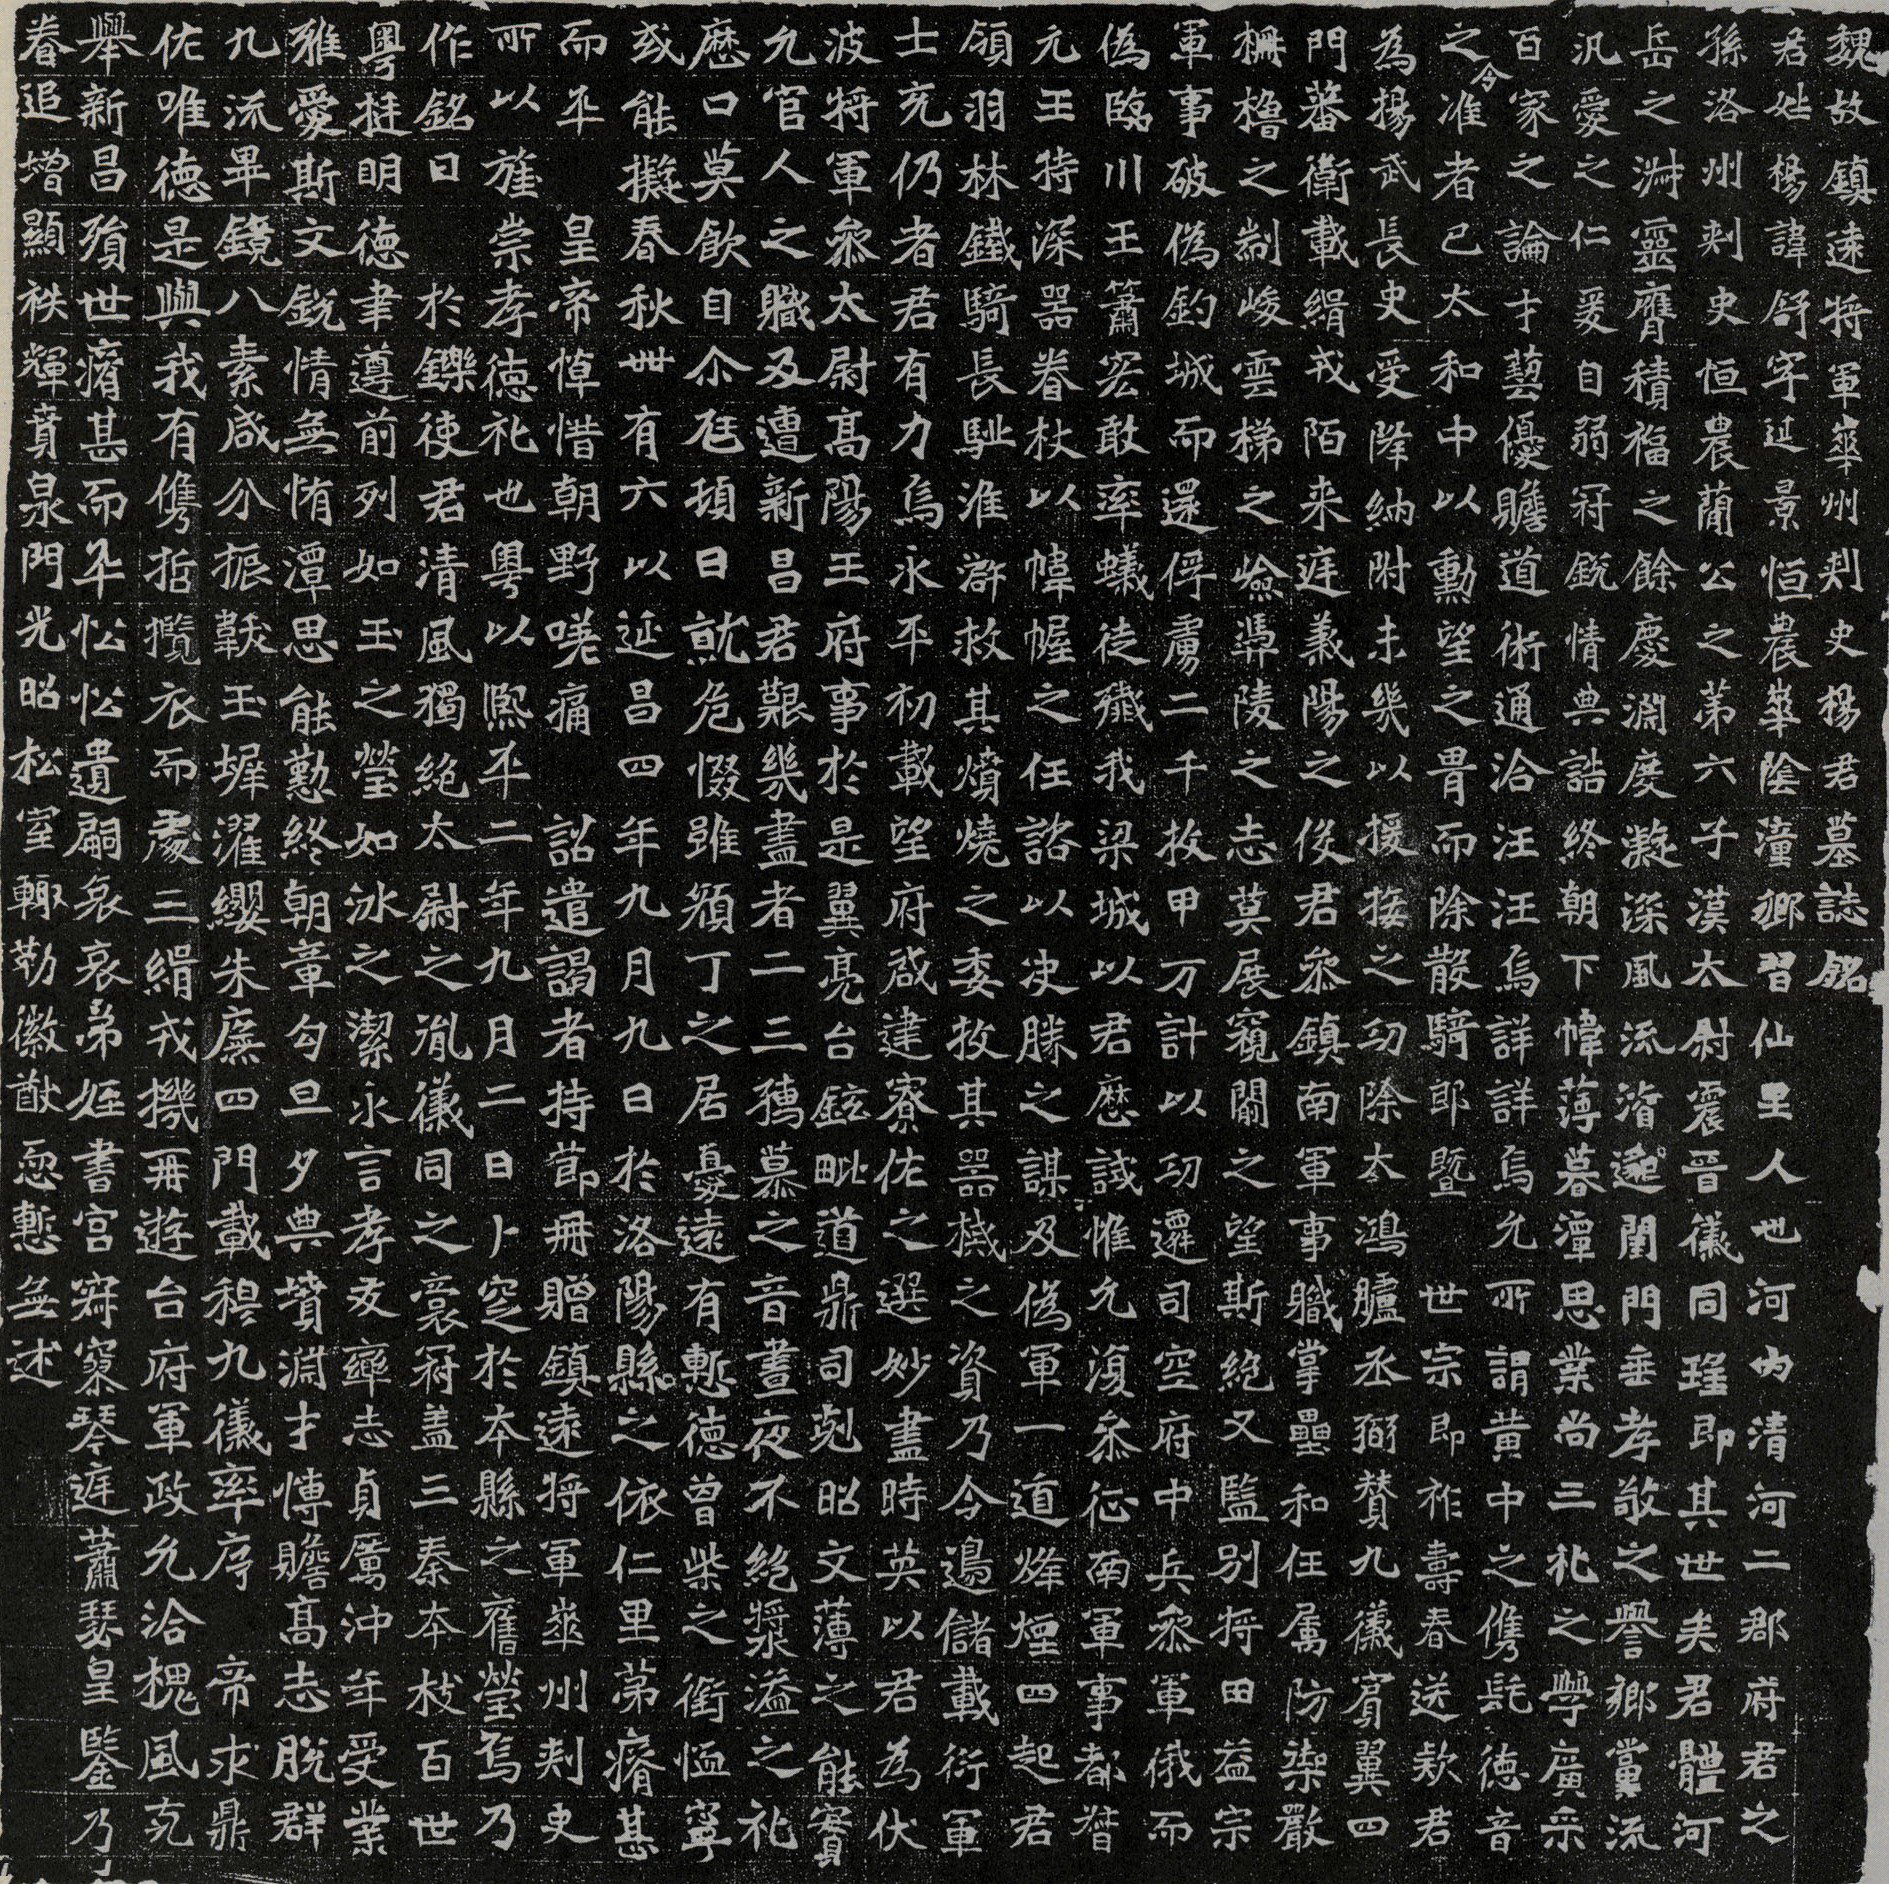 魏故鎮遠將軍華州刾史楊君墓誌銘
君姓楊諱舒字延景恒農華陰潼鄉習仙里人也河內清河二郡府君之
孫洛州刾史恒農蕳公之第六子漢太尉震晉儀同瑤即其世矣君體河
岳之渊靈膺積福之餘慶淵度凝深風流清邈閨門垂孝敬之譽鄉黨流
汎愛之仁爰自弱冠銳情典誥終朝下幃薄暮潭思業尚三礼之學廣采
百家之論才藝優贍道術通洽汪汪焉詳詳焉允所謂黃中之儁髦德音
之令准者已太和中以勳望之胄而除散騎郎暨　世宗即祚壽春送款君
為揚武長史受降納附未幾以援接之功除太鴻臚丞弼贊九儀賓翼四
門蕃衛載緝戎陌来庭義陽之役君叅鎮南軍事職掌壘和任属防禦嚴
柵櫓之制峻雲梯之嶮憑陵之志莫展窺闚之望斯絕又監別將田益宗
軍事破偽釣城而還俘虜二千收甲万計以功遷司空府中兵叅軍俄而
偽臨川王簫宏敢率蟻徒殱我梁城以君歷試惟允復叅征南軍事都督
元王特深器眷杖以幃幄之任諮以决勝之謀及偽軍一道烽煙四起君
領羽林鐵騎長馳淮滸救其燌燒之委收其器械之資乃令邊儲載衍軍
士充仍者君有力焉永平初載望府啟建寮佐之選妙盡時英以君為伏
波將軍叅太尉高陽王府事於是翼亮台鉉毗道鼎司剋昭文薄之能實
允官人之職及遭新昌君艱幾盡者二三孺慕之音晝夜不絕漿溢之礼
歷口莫飲自尒尫頓日就危惙雖顏丁之居憂遠有慙德曾柴之銜恤寧
或能擬春秋卌有六以延昌四年九月九日於洛陽縣之依仁里第瘠甚
而卒　皇帝悼惜朝野嗟痛　詔遣謁者持節冊贈鎮遠將軍華州刾史
所以旌崇孝德礼也粤以熙平二年九月二日卜窆於本縣之舊塋焉乃
作銘曰　於鑠使君清風獨絕太尉之胤儀同之裔冠盖三秦本枝百世
粤挺明德聿遵前列如玉之瑩如冰之潔永言孝友率志貞厲沖年受業
雅愛斯文銳情無怠潭思能懃終朝章句旦夕典墳淵才慱贍高志脫群
九流畢鏡八素咸分振韍玉墀濯纓朱廡四門載穆九儀率序　帝求鼎
佐唯德是與我有儁哲攬衣而處三緝戎機再遊台府軍政允洽槐風克
舉新昌殞世瘠甚而卒忪忪遺嗣哀哀弟姪書宮寂寥琴庭蕭瑟皇鑒乃
眷追增顯袟輝賁泉門光昭松室輙勒徽猷恧慙無述